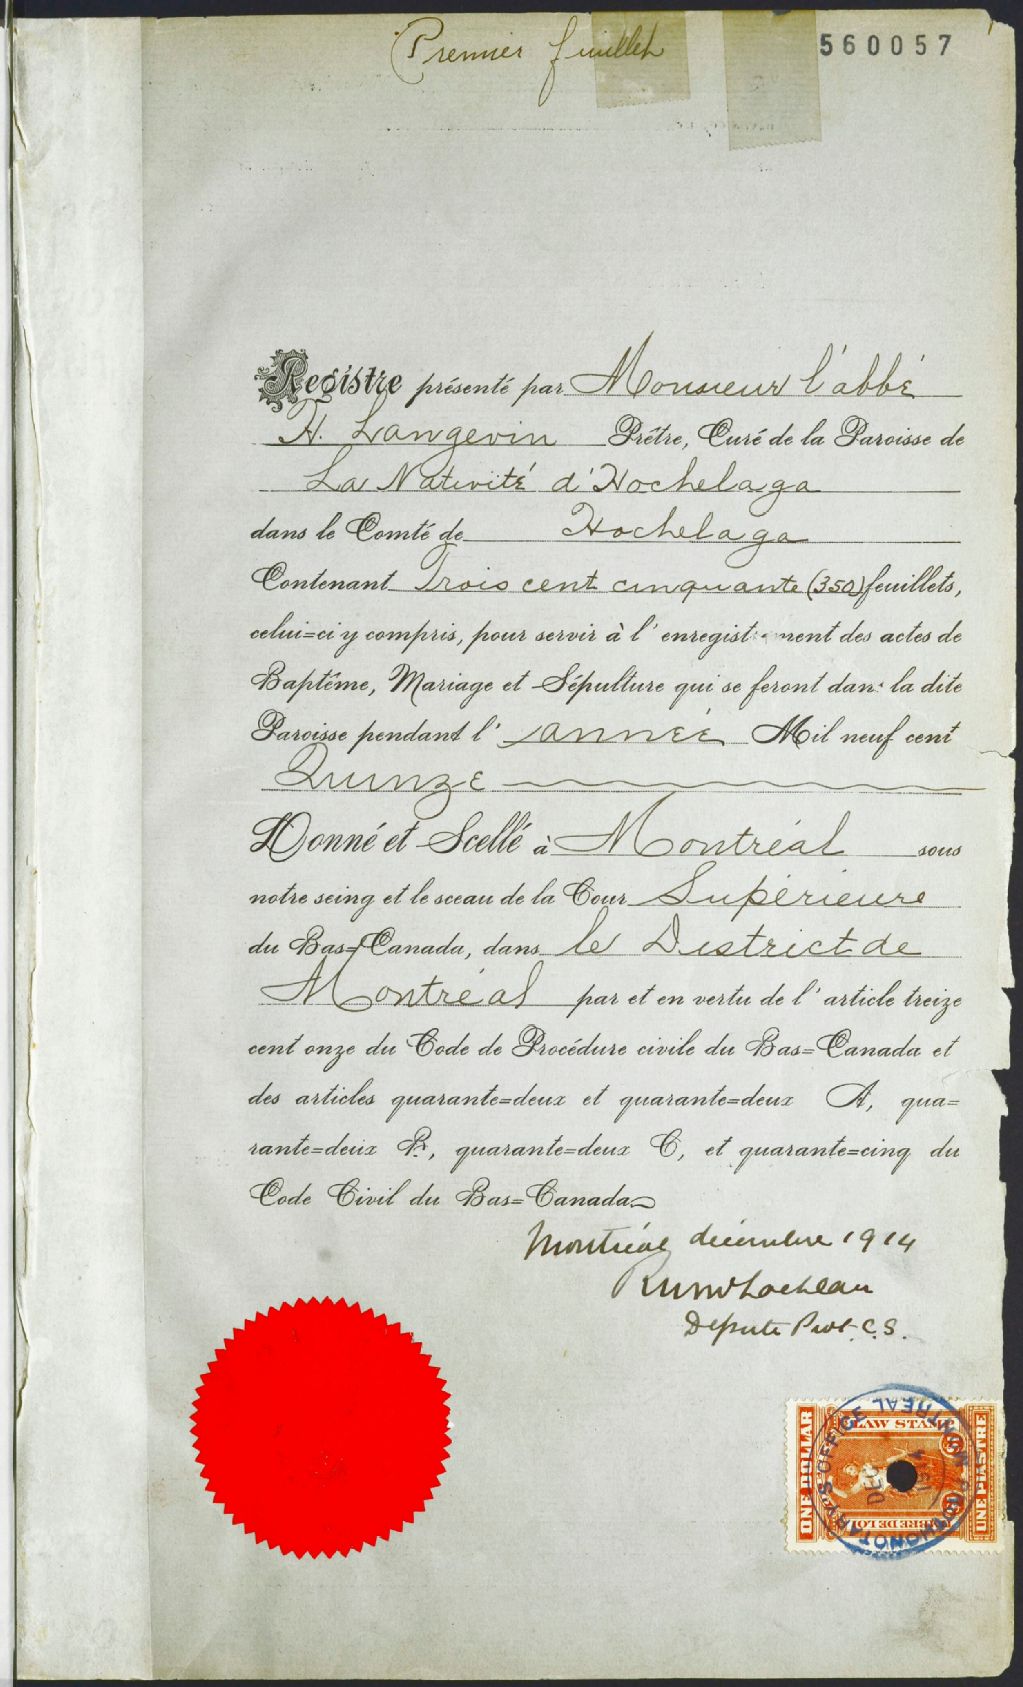 Premier feuillet
560057
Registre présenté par Monsieur l'abbé
H. Langevin Prêtre, Curé de la Paroisse de
La Nativité d'Hochelaga
dans le Comté de Hochelaga
Contenant Trois cent cinquante (350) feuillets,
celui=ci y compris, pour servir à l'enregistrement des actes de
Baptême, Mariage et Sépulture qui se feront dans la dite
Paroisse pendant l'année Mil neuf cent
Quinze
Donné et Scellé à Montréal sous
notre seing et le sceau de la Cour Supérieure
du Bas=Canada, dans le District de
Montréal par et en vertu de l'article treize
cent onze du Code de Procédure civile du Bas=Canada et
des articles quarante=deux et quarante=deux A, qua=
rante=deux B, quarante=deux C, et quarante=cinq du
Code Civil du Bas=Canada
Montréal décembre 1914
Députe Prot. C.S.
ONE DOLLAR
LAW STAMP
TIMBRE DE LOI
UNE PIASTRE
PROTHONOTARY'S OFFICE MONTREAL
DEC
1914